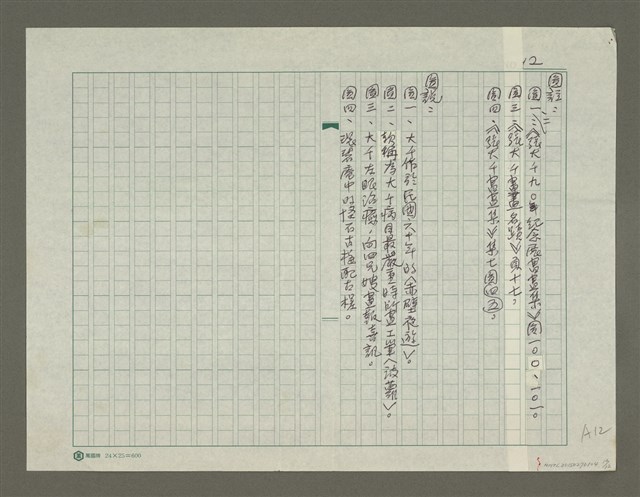 12
圖註:
圖一、二:《張大千九〇年紀念展書畫集》圖一〇〇、一〇一。
圖三:《張大千書畫名蹟》頁十七。
圖四:《張大千書畫集》集七圖四五。
圖說:
圖一、大千作於民國六十年的〈赤壁夜遊〉。
圖二、號稱為大千病目最嚴重時所畫工筆〈波蘿〉。
圖三、大千左眼治癒,向四兄嫂畫報喜訊。
圖四、環蓽庵中的怪石古梅配古槎。
24×25=600
A12